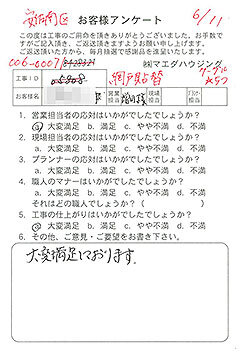 安佐南区 お客様アンケート 6/11
この度は工事のご用命を頂きありがとうございました。お手数で
すがご記入頂き、ご返送頂きますようお願い申し上げます。
ご返送頂いた方から、毎月抽選で感謝品を進呈いたします。
006-0007 ㈱マエダハウジング
工事ID 網戸貼替
お客様名 様 営業担当 現場担当
1. 営業担当者の応対はいかがでしたでしょうか?
a. 大変満足 b. 満足 c. やや不満 d. 不満
2. 現場担当者の応対はいかがでしたでしょうか?
a. 大変満足 b. 満足 c. やや不満 d. 不満
3. プランナーの応対はいかがでしたでしょうか?
a. 大変満足 b. 満足 c. やや不満 d. 不満
4. 職人のマナーはいかがでしたでしょうか?
a. 大変満足 b. 満足 c. やや不満 d. 不満
それはどの職人でしょうか?( )
5. 工事の仕上がりはいかがでしたでしょうか?
a. 大変満足 b. 満足 c. やや不満 d. 不満
6. その他、ご意見・ご要望をお書き下さい。
大変満足しております。